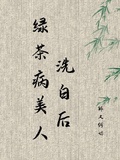 洗白后
绿茶病美人